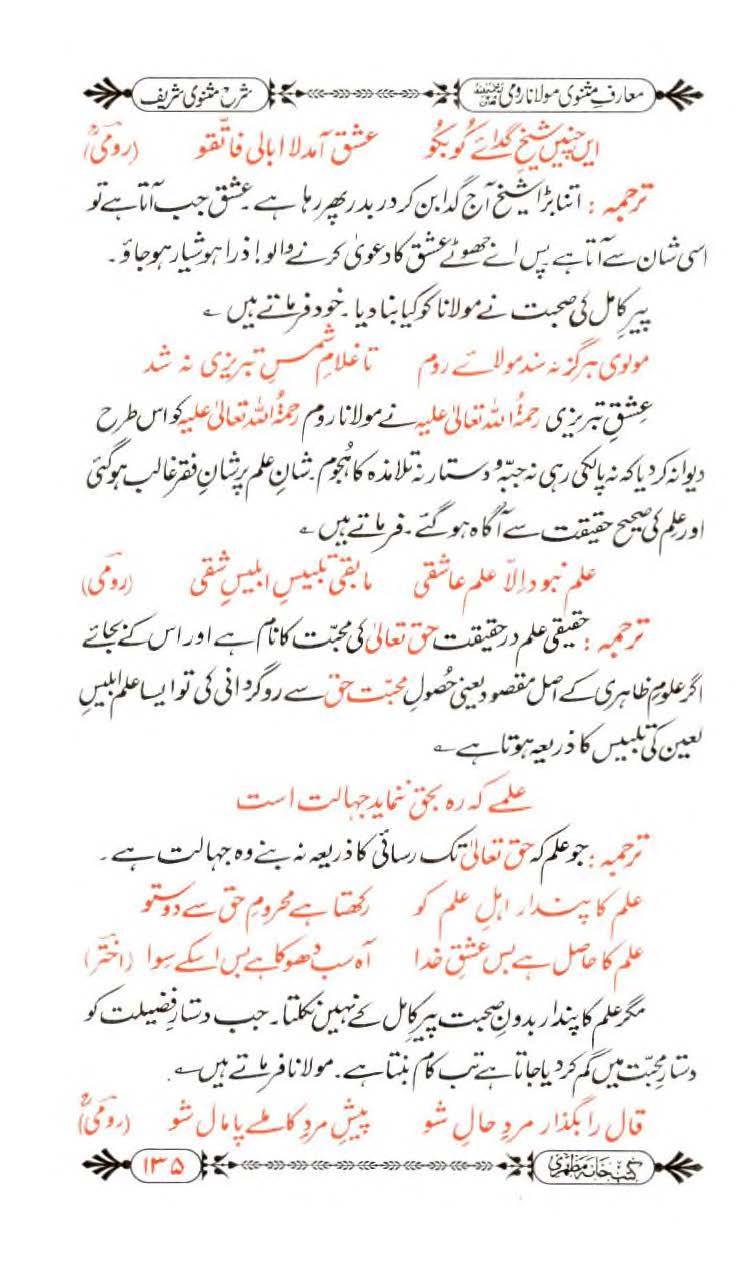 معارفِ مثنوی مولانا رومیؒ شرح مثنوی شریف
ایں چنیں شیخِ گدائے کُو بکُو عشق آمد لا ابالی فاتّقو (رومیؒ)
ترجمہ: اتنا بڑا شیخ آج گدا بن کر در بدر پھر رہا ہے۔ عشق جب آتا ہے تو
اسی شان سے آتا ہے پس اے جھوٹے عشق کا دعویٰ کرنے والو! ذرا ہوشیار ہو جاؤ۔
پیرِ کامل کی صحبت نے مولانا کو کیا بنا دیا۔ خود فرماتے ہیں ؎
مولوی ہرگز نہ شد مولائے روم تا غلامِ شمسِ تبریزی نہ شد
عشقِ تبریزی رحمۃُ اللہ تعالیٰ علیہ نے مولانا روم رحمۃُ اللہ تعالیٰ علیہ کو اس طرح
دیوانہ کر دیا کہ نہ پالکی رہی نہ جبّہ و دستار نہ تلامذہ کا ہُجوم۔ شانِ علم پر شانِ فقر غالب ہو گئی
اور علم کی صحیح حقیقت سے آگاہ ہو گئے۔ فرماتے ہیں ؎
علم نبود اِلّا علم عاشقی مابقی تلبیسِ ابلیسِ شقی (رومیؒ)
ترجمہ: حقیقی علم در حقیقت حق تعالیٰ کی محبّت کا نام ہے اور اس کے بجائے
اگر علومِ ظاہری کے اصل مقصود یعنی حُصولِ محبّت حق سے روگردانی کی تو ایسا علم ابلیسِ
لعین کی تلبیس کا ذریعہ ہوتا ہے ؎
علمے کہ رہ بحق ننماید جہالت است
ترجمہ: جو علم کہ حق تعالیٰ تک رسائی کا ذریعہ نہ بنے وہ جہالت ہے۔
علم کا پندار اہلِ علم کو رکھتا ہے محرومِ حق سے دوستو
علم کا حاصل ہے بس عشقِ خدا آہ سب دھوکا ہے بس اسکے سِوا (اخترؔ)
مگر علم کا پندار بدونِ صحبت پیرِ کامل کے نہیں نکلتا۔ جب دستارِ فضیلت کو
دستارِ محبّت میں گم کر دیا جاتا ہے تب کام بنتا ہے۔ مولانا فرماتے ہیں ؎
قال را بگذار مردِ حال شو پیشِ مردِ کاملے پامال شو (رومیؒ)
کتب خانہ مظہری ۱۳۵